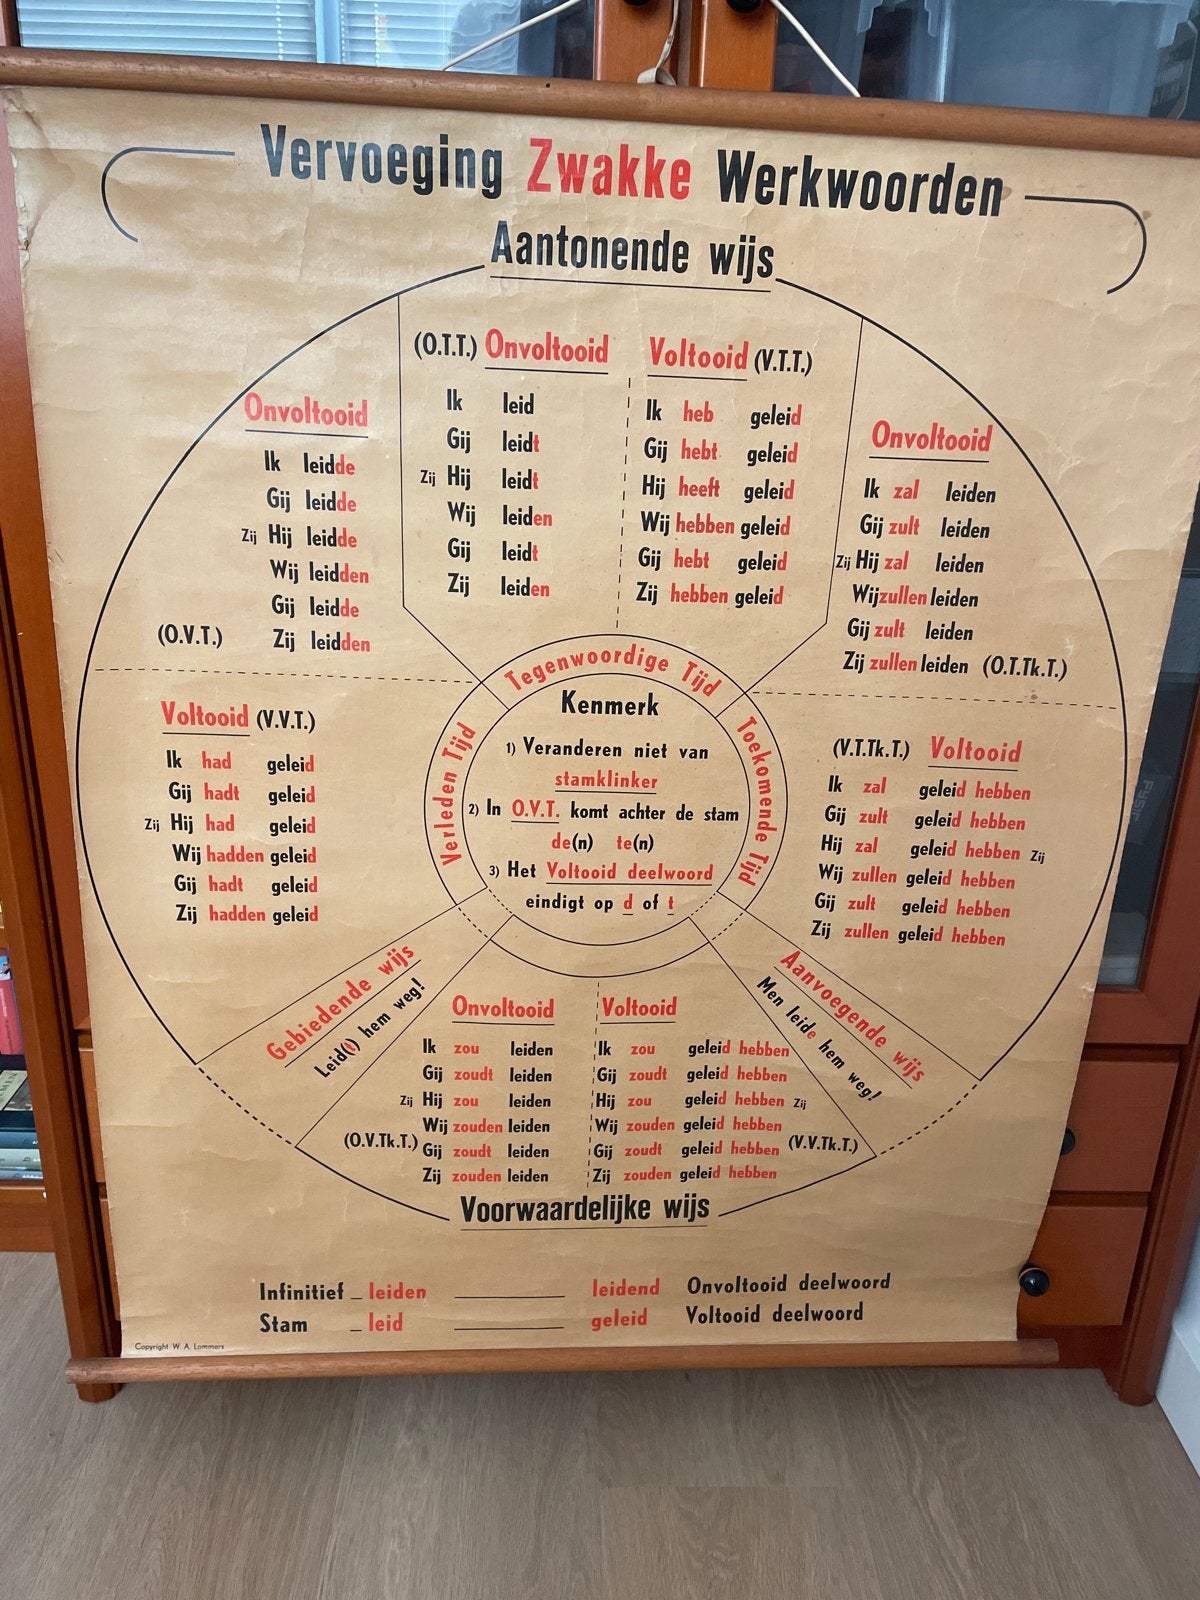 Vervoeging Zwakke Werkwoorden
Aantonende wijs
(O.T.T.) Onvoltooid
Ik leid
Gij leidt
Zij Hij leidt
Wij leiden
Gij leidt
Zij leiden
Voltooid (V.T.T.)
Ik heb geleid
Gij hebt geleid
Hij heeft geleid
Wij hebben geleid
Gij hebt geleid
Zij hebben geleid
Onvoltooid
Ik leidde
Gij leidde
Zij Hij leidde
Wij leidden
Gij leidde
(O.V.T.) Zij leidden
Onvoltooid
Ik zal leiden
Gij zult leiden
Zij Hij zal leiden
Wij zullen leiden
Gij zult leiden
Zij zullen leiden (O.T.Tk.T.)
Voltooid (V.V.T.)
Ik had geleid
Gij hadt geleid
Zij Hij had geleid
Wij hadden geleid
Gij hadt geleid
Zij hadden geleid
Tegenwoordige Tijd
Verleden Tijd
Toekomende Tijd
Kenmerk
1) Veranderen niet van
stamklinker
2) In O.V.T. komt achter de stam
de(n) te(n)
3) Het Voltooid deelwoord
eindigt op d of t
(V.T.Tk.T.) Voltooid
Ik zal geleid hebben
Gij zult geleid hebben
Hij zal geleid hebben Zij
Wij zullen geleid hebben
Gij zult geleid hebben
Zij zullen geleid hebben
Gebiedende wijs
Leid(t) hem weg!
Aanvoegende wijs
Men leide hem weg!
Onvoltooid
Ik zou leiden
Gij zoudt leiden
Zij Hij zou leiden
Wij zouden leiden
(O.V.Tk.T.) Gij zoudt leiden
Zij zouden leiden
Voltooid
Ik zou geleid hebben
Gij zoudt geleid hebben
Hij zou geleid hebben Zij
Wij zouden geleid hebben
Gij zoudt geleid hebben (V.V.Tk.T.)
Zij zouden geleid hebben
Voorwaardelijke wijs
Infinitief _ leiden leidend Onvoltooid deelwoord
Stam _ leid geleid Voltooid deelwoord
Copyright W. A. Lommers